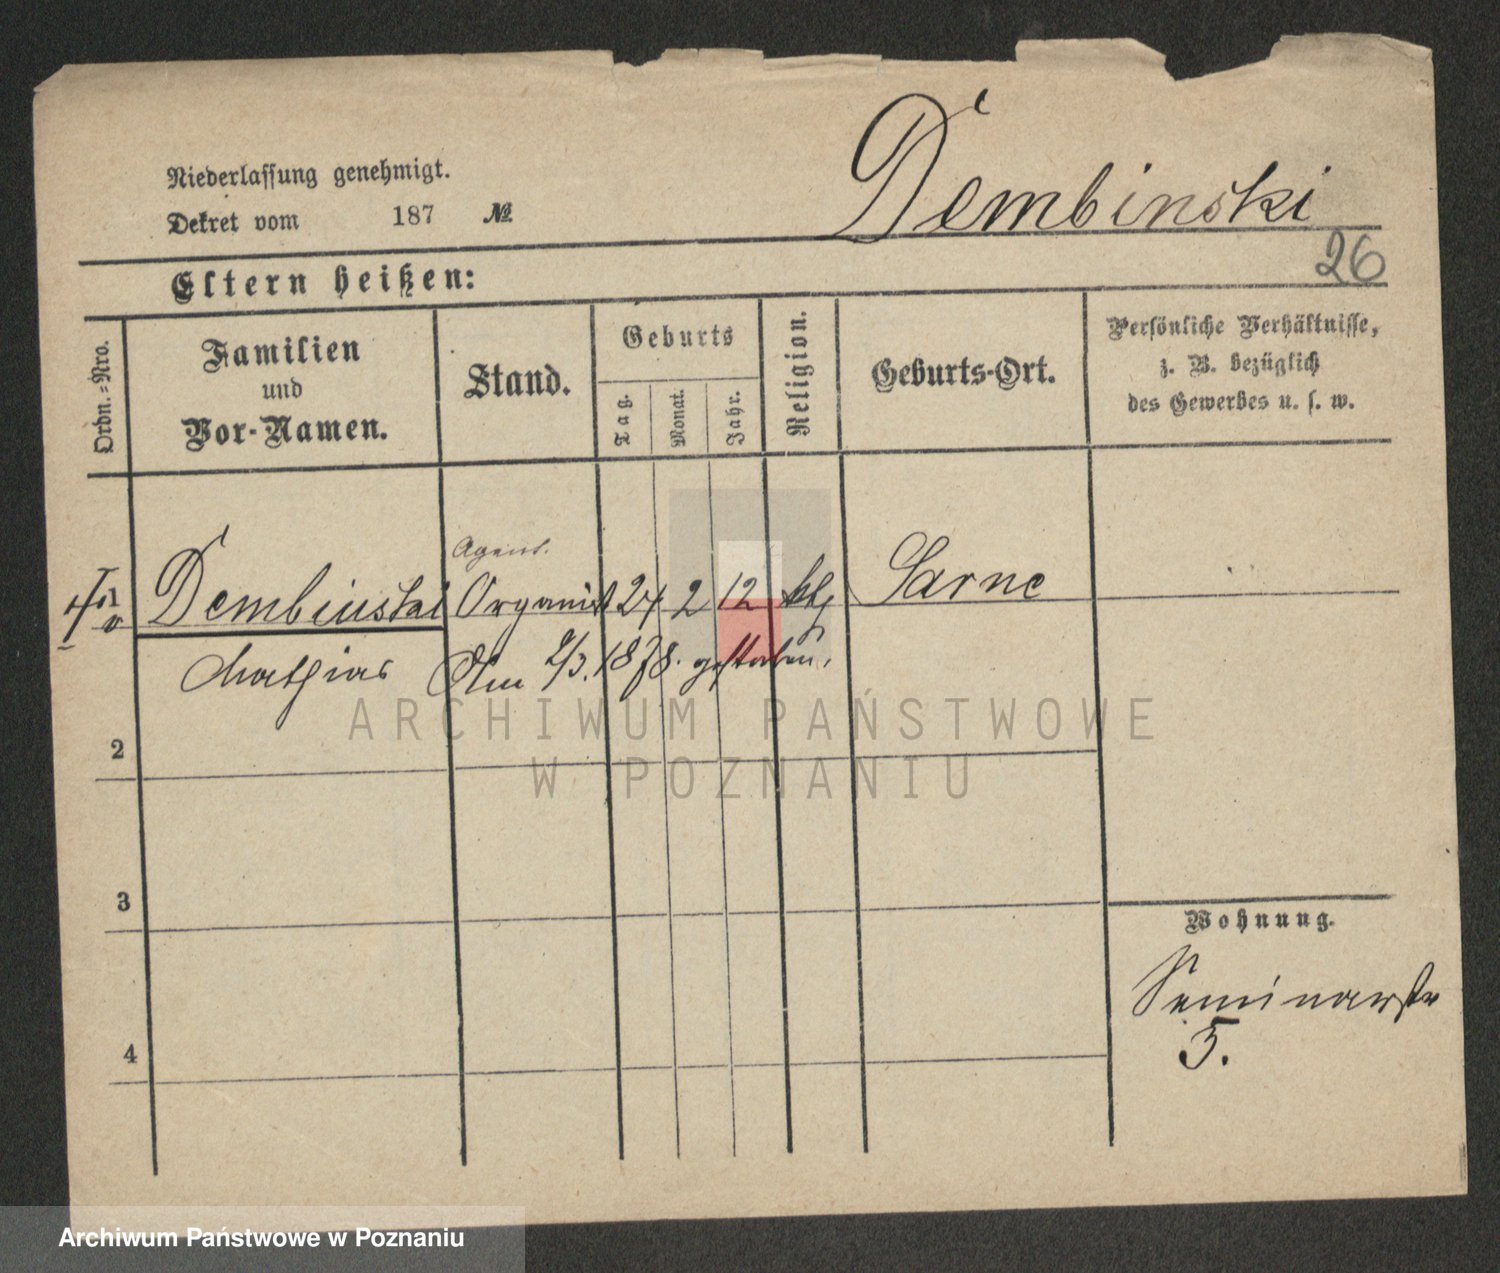 Dembinski
Niederlassung genehmigt.
Dekret vom 187 №
26
Eltern heißen:
Ordn.-Nro.
Familien
und
Vor-Namen.
Stand.
Geburts
Tag.
Monat.
Jahr.
Religion.
Geburts-Ort.
Persönliche Verhältnisse,
z. B. bezüglich
des Gewerbes u. s. w.
Agent.
Dembinski Organist 24 2 12 ktl Sarne
Mathias Am 9/3. 1878. gestorben.
2
3
4
Wohnung.
Seminarstr
5.
ARCHIWUM PAŃSTWOWE
W POZNANIU
Archiwum Państwowe w Poznaniu